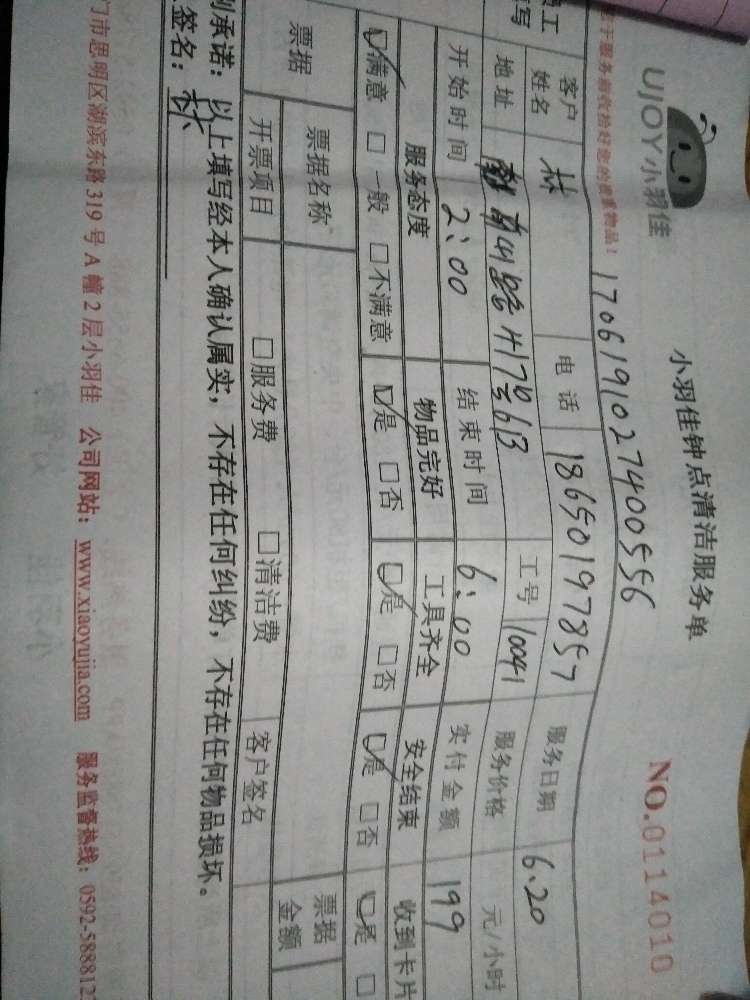 UJOY小羽佳
小羽佳钟点清洁服务单
NO.0114010
于服务前收拾好您的贵重物品！
1706191027400556
客户姓名 林 电话 18650197857 服务日期 6.20
地址 湖南路417号613 工号 10041 服务价格 元/小时
开始时间 2:00 结束时间 6:00 实付金额 199
服务态度 物品完好 工具齐全 安全结束 收到卡片
☑满意 □一般 □不满意 ☑是 □否 ☑是 □否 ☑是 □否 ☑是 □
票据 票据名称 票据金额
开票项目 □服务费 □清洁费 客户签名
承诺：以上填写经本人确认属实，不存在任何纠纷，不存在任何物品损坏。
签名：林
门市思明区湖滨东路319号A幢2层小羽佳 公司网站：www.xiaoyujia.com 服务监督热线：0592-588812